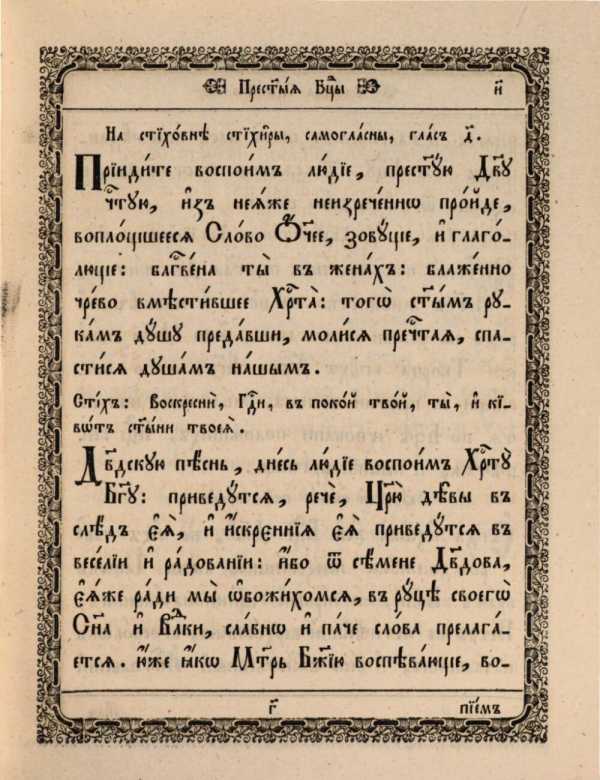 Прест҃ыѧ Бц҃ы и҃
На стїхо́внѣ стїхи̑ры, самогла́сны, гла́съ д҃.
Прїиди́те воспои́мъ лю́дїе, прест҃ꙋ́ю Дв҃ꙋ
чⷭ҇тꙋю, и҆з̾ неѧ́же неизрече́ннѡ про́йде,
воплощшееся Сло́во Ѻ҆́ч҃ее, зовꙋ́ще, и҆ глаго́-
люще: благⷭ҇ве́на ты̀ въ жена́хъ: блаже́нно
чре́во вмѣсти́вшее Хрⷭ҇та̀: тогѡ̀ ст҃ы̑мъ рꙋ-
ка́мъ дꙋ́шꙋ преда́вши, моли́сѧ пречⷭ҇таѧ, спа-
сти́сѧ дꙋша́мъ на́шымъ.
Сті́хъ: Воскреснѝ, Гдⷭ҇и, въ поко́й тво́й, ты̀, и҆ кі-
вѡ́тъ ст҃ы́ни твоеѧ̀.
Дв҃дскꙋю пѣ́снь, дне́сь лю́дїе воспои́мъ Хрⷭ҇тꙋ̀
Бг҃ꙋ: приведꙋ́тсѧ, речѐ, Цр҃ю̀ дѣ̑вы въ
слѣ́дъ є҆ѧ̀, и҆ и҆́скреннїѧ є҆ѧ̀ приведꙋ́тсѧ въ
весе́лїи и҆ ра́дованїи: и҆́бо ѿ сѣ́мене Дв҃дова,
є҆ѧ́же ра́ди мы̀ ѡ҆божи́хомсѧ, въ рꙋцѣ̀ своегѡ̀
Сн҃а и҆ Влⷣки, сла́внѡ и҆ па́че сло́ва прелага́-
етсѧ. ю҆́же ꙗ҆́кѡ Мт҃рь Бж҃їю воспѣва́юще, во-
г҃ пїе́мъ